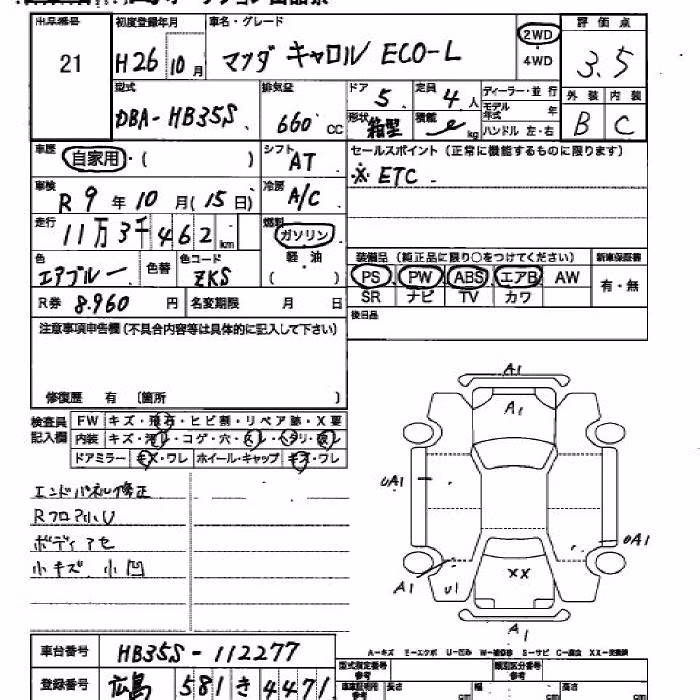 出品番号 初度登録年月 車名・グレード 評価点
21 H26 10月 マツダ キャロル ECO-L 2WD 4WD 3.5
型式 排気量 ドア 定員 ディーラー・並行 外装 内装
DBA-HB35S 660 CC 5 4人 モデル年式 年 B C
形状 箱型 積載 kg ハンドル 左・右
車歴 自家用・( ) シフト AT セールスポイント(正常に機能するものに限ります)
※ ETC
車検 R9年10月(15日) 冷房 A/C
走行 11万3千462km 燃料 ガソリン 軽油 ( )
色 エアブルー 色替 色コード ZKS
装備品(純正品に限り○をつけてください) 新車保証書
PS PW ABS エアB AW 有・無
SR ナビ TV カワ
R券 8.960円 名変期限 月 日
後日品
注意事項申告欄(不具合内容等は具体的に記入して下さい)
修復歴 有 〔箇所 〕
検査員記入欄 FW キズ・飛石・ヒビ割・リペア跡・X要
内装 キズ・汚レ・コゲ・穴・スレ・ヘタリ・破レ
ドアミラー キズ・ワレ ホイール・キャップ キズ・ワレ
エンドパネル修正
Rフロア小U
ボディアセ
小キズ、小凹
A1
A1
UA1
UA1
A1 U1 XX
A1
A-キズ E-エクボ U-凹み W-補修跡 S-サビ C-腐食 XX-交換済
車台番号 HB35S-112277
型式指定番号 参考 類別区分番号 参考
登録番号 広島 581 き 4471
車車証明用 参考 長さ cm 幅 cm 高さ cm